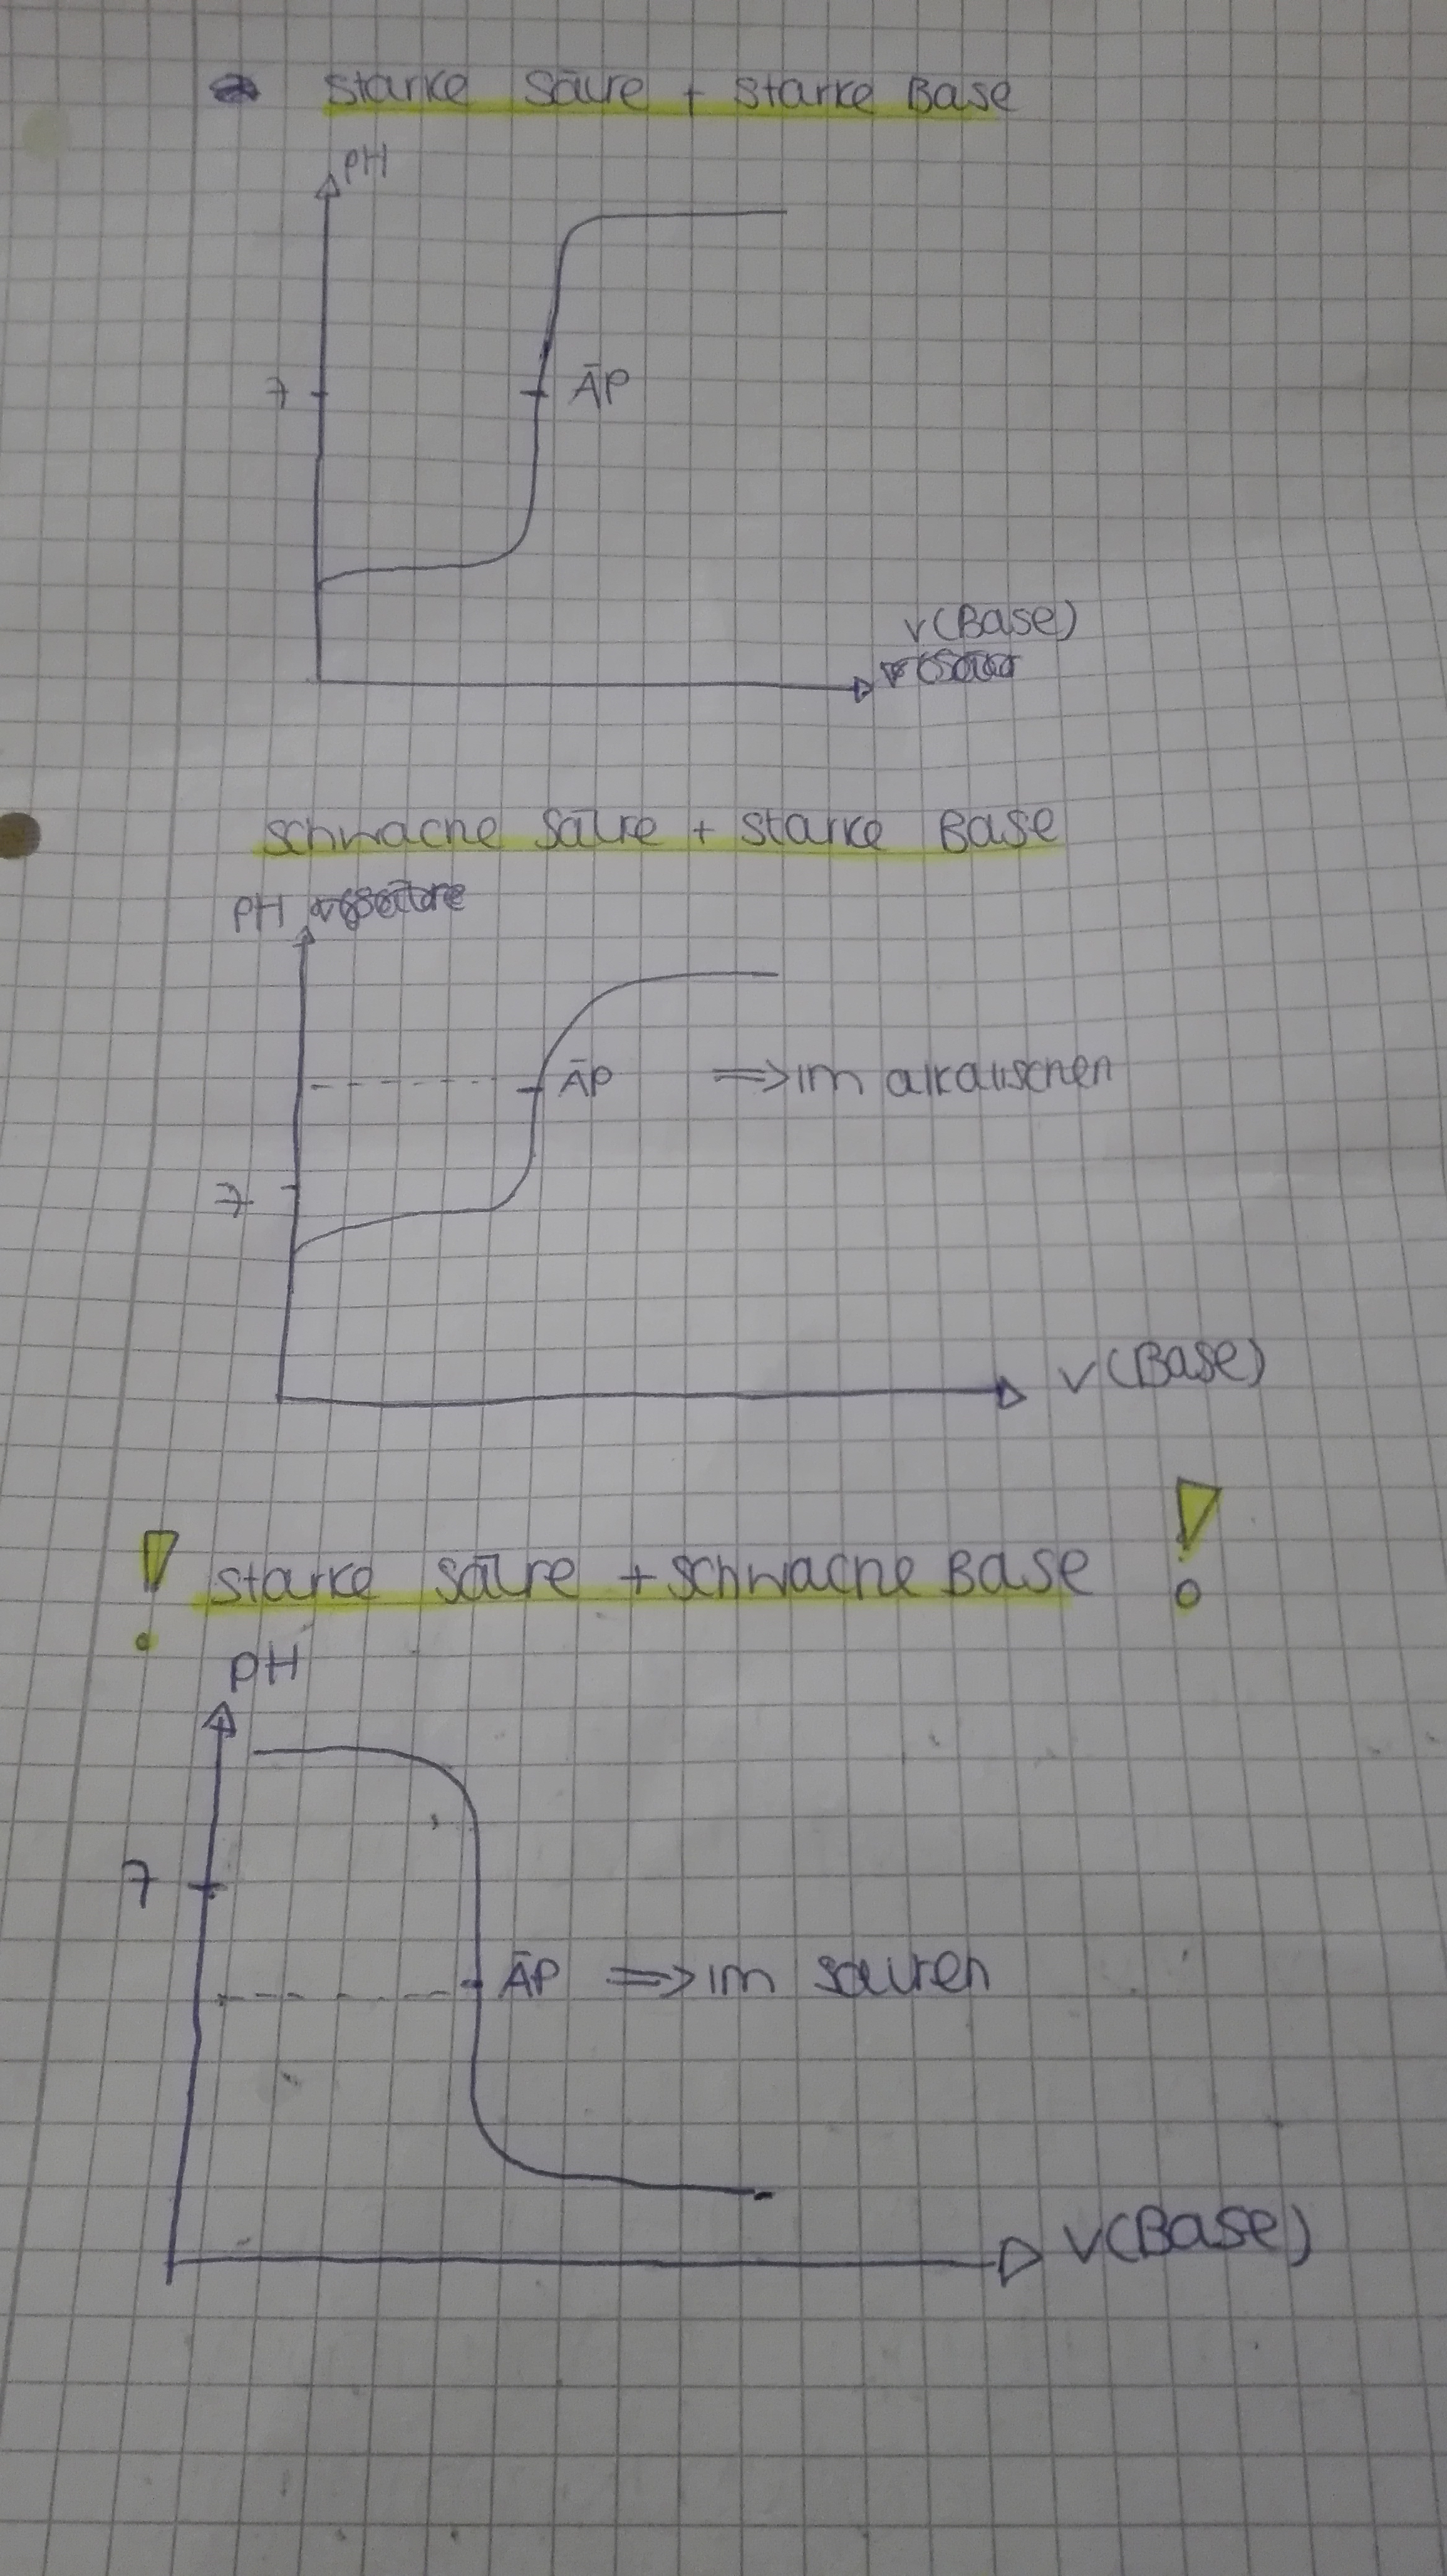 Starke Säure + Starke Base
PH
7
ÄP
V(Base)
Schwache Säure + Starke Base
PH
ÄP => im alkalischen
7
V(Base)
! Starke Säure + Schwache Base !
PH
7
ÄP => im sauren
V(Base)